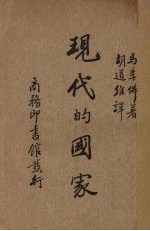 馬季佛著
胡道維譯
現代的國家
商務印書館發行